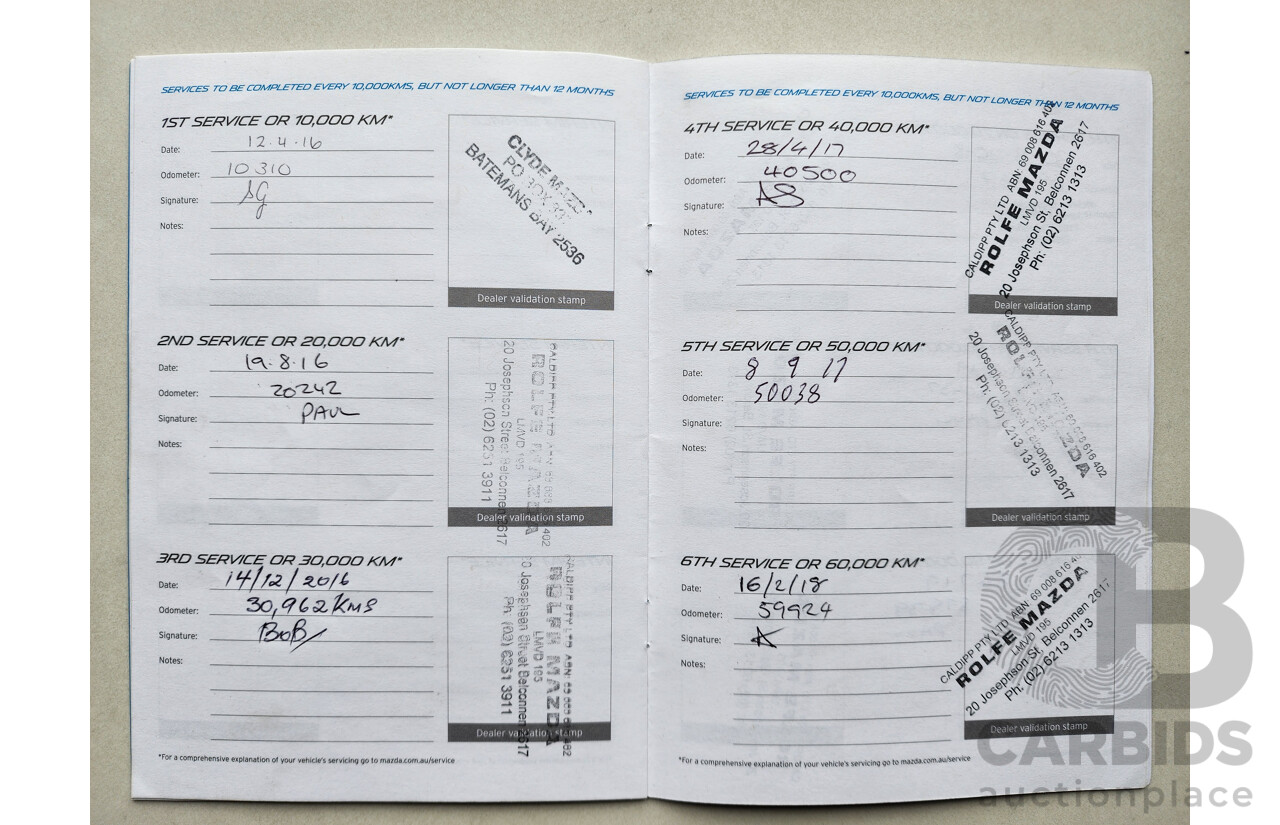 SERVICES TO BE COMPLETED EVERY 10,000KMS, BUT NOT LONGER THAN 12 MONTHS
1ST SERVICE OR 10,000 KM*
Date: 12.4.16
Odometer: 10310
Signature: SG
Notes:
CLYDE
PO BOX
BATEMANS BAY 2536
Dealer validation stamp
2ND SERVICE OR 20,000 KM*
Date: 19.8.16
Odometer: 20242
Signature: PAUL
Notes:
CALDIPP PTY LTD ABN 69 008 402
ROLFE MAZDA
LMVD 195
20 Josephson Street Belconnen 2617
Ph: (02) 6251 3911
Dealer validation stamp
3RD SERVICE OR 30,000 KM*
Date: 14/12/2016
Odometer: 30,962 KMS
Signature: BOB
Notes:
CALDIPP PTY LTD ABN: 402
ROLFE MAZDA
LMVD 195
20 Josephson Street Belconnen 2617
Ph: (02) 6251 3911
Dealer validation stamp
*For a comprehensive explanation of your vehicle's servicing go to mazda.com.au/service
SERVICES TO BE COMPLETED EVERY 10,000KMS, BUT NOT LONGER THAN 12 MONTHS
4TH SERVICE OR 40,000 KM*
Date: 28/4/17
Odometer: 40500
Signature: AS
Notes:
CALDIPP PTY LTD ABN: 69 008 616 402
ROLFE MAZDA
LMVD 195
20 Josephson St, Belconnen 2617
Ph: (02) 6213 1313
Dealer validation stamp
5TH SERVICE OR 50,000 KM*
Date: 8 9 17
Odometer: 50038
Signature:
Notes:
CALDIPP PTY LTD ABN 69 008 616 402
ROLFE MAZDA
20 Josephson Belconnen 2617
Ph: (02) 6213 1313
Dealer validation stamp
6TH SERVICE OR 60,000 KM*
Date: 16/2/18
Odometer: 59924
Signature:
Notes:
CALDIPP PTY LTD ABN: 69 008 616
ROLFE MAZDA
LMVD 195
20 Josephson St, Belconnen 2617
Ph: (02) 6213 1313
Dealer validation stamp
*For a comprehensive explanation of your vehicle's servicing go to mazda.com.au/service
CARBIDS
auctionplace